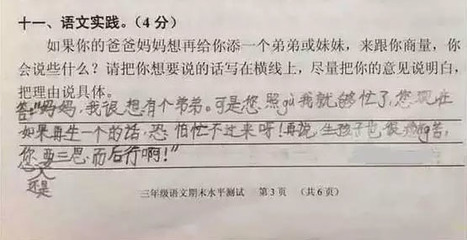 十一、语文实践。(4分)
如果你的爸爸妈妈想再给你添一个弟弟或妹妹，来跟你商量，你
会说些什么？请把你想要说的话写在横线上，尽量把你的意见说明白，
把理由说具体。
答:“妈妈，我很想有个弟弟。可是您照gù我就够忙了，您现在
如果再生一个的话，恐怕忙不过来呀！再说，生孩子也很
您要三思而后行啊！”
还是
三年级语文期末水平测试 第3页 (共6页)